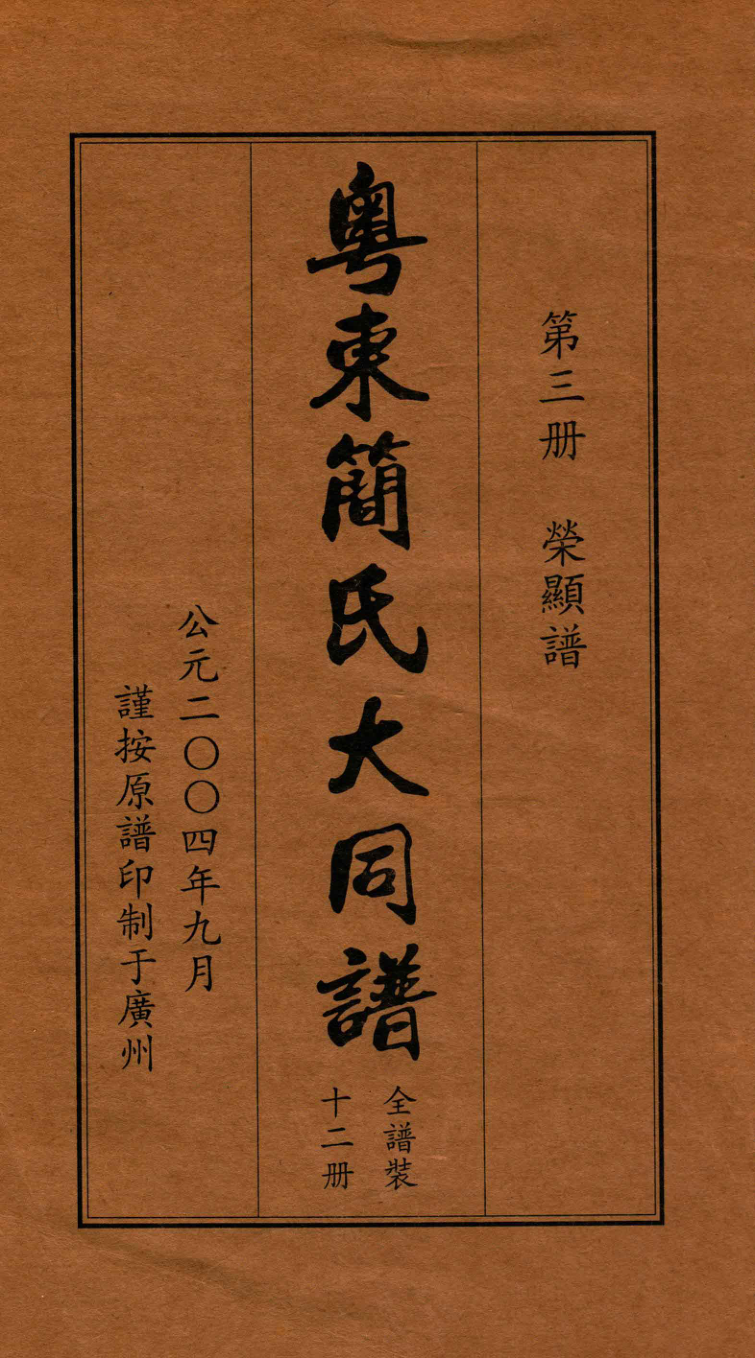 第三册 榮顯譜
粵東簡氏大同譜
全譜裝
十二册
公元二〇〇四年九月
謹按原譜印制于廣州